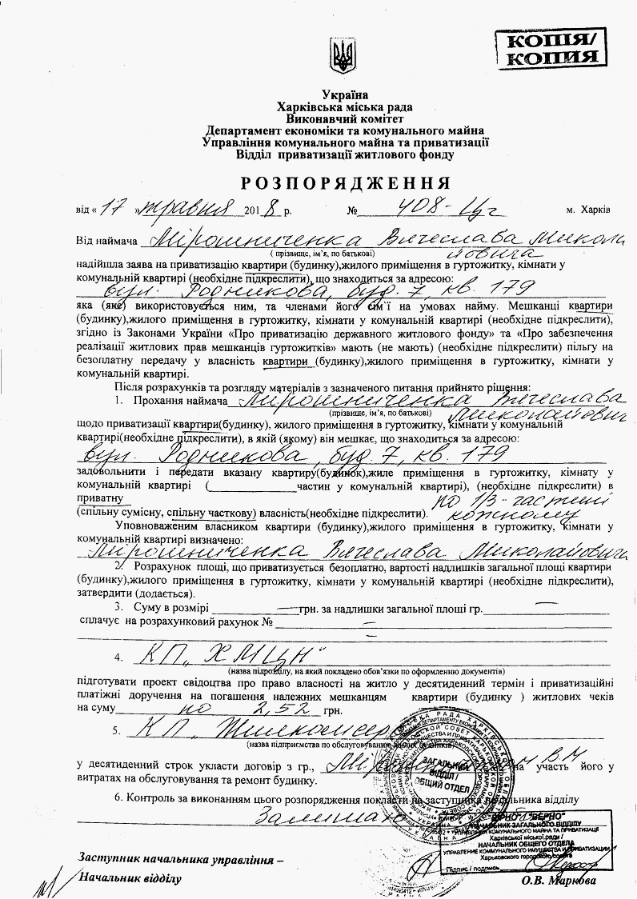 КОПІЯ/
КОПИЯ
Україна
Харківська міська рада
Виконавчий комітет
Департамент економіки та комунального майна
Управління комунального майна та приватизації
Відділ приватизації житлового фонду
РОЗПОРЯДЖЕННЯ
від « 17 » травня 2018 р. № 408- м. Харків
Від наймача Мірошниченка Вячеслава Микола
( прізвище, ім'я, по батькові) йовича
надійшла заява на приватизацію квартири (будинку),жилого приміщення в гуртожитку, кімнати у
комунальній квартирі (необхідне підкреслити), що знаходиться за адресою:
вул. Родникова, буд. 7, кв. 179
яка (яке) використовується ним, та членами його сім'ї на умовах найму. Мешканці квартири
(будинку),жилого приміщення в гуртожитку, кімнати у комунальній квартирі (необхідне підкреслити),
згідно із Законами України «Про приватизацію державного житлового фонду» та «Про забезпечення
реалізації житлових прав мешканців гуртожитків» мають (не мають) (необхідне підкреслити) пільгу на
безоплатну передачу у власність квартири (будинку),жилого приміщення в гуртожитку, кімнати у
комунальній квартирі.
Після розрахунків та розгляду матеріалів з зазначеного питання прийнято рішення:
1. Прохання наймача Мірошниченка Вячеслава
(прізвище, ім'я, по батькові) Миколайович
щодо приватизації квартири(будинку), жилого приміщення в гуртожитку, кімнати у комунальній
квартирі(необхідне підкреслити), в якій (якому) він мешкає, що знаходиться за адресою:
вул. Родникова, буд. 7, кв. 179
задовольнити і передати вказану квартиру(будинок),жиле приміщення в гуртожитку, кімнату у
комунальній квартирі (частин у комунальній квартирі), (необхідне підкреслити) в
приватну по 1/3-частині
(спільну сумісну, спільну часткову) власність(необхідне підкреслити). кожному
Уповноваженим власником квартири (будинку),жилого приміщення в гуртожитку, кімнати у
комунальній квартирі визначено:
Мірошниченка Вячеслава Миколайовича
2. Розрахунок площі, що приватизується безоплатно, вартості надлишків загальної площі квартири
(будинку),жилого приміщення в гуртожитку, кімнати у комунальній квартирі (необхідне підкреслити),
затвердити (додається).
3. Суму в розмірі — грн. за надлишки загальної площі гр. —
сплачує на розрахунковий рахунок № —
4. КП „ХМЦН"
(назва підрозділу, на який покладено обов'язки по оформленню документів)
підготувати проект свідоцтва про право власності на житло у десятиденний термін і приватизаційні
платіжні доручення на погашення належних мешканцям квартири (будинку ) житлових чеків
на суму по 2,52 грн.
5. КП „Жилкомсер
(назва підприємства по обслуговуванню
у десятиденний строк укласти договір з гр., В.М на участь його у
витратах на обслуговування та ремонт будинку.
6. Контроль за виконанням цього розпорядження покласти на заступника начальника відділу
ЗАГАЛЬНИЙ
ВІДДІЛ /
ОБЩИЙ ОТДЕЛ
ВІРНО "ВЕРНО"
НАЧАЛЬНИК ЗАГАЛЬНОГО ВІДДІЛУ
УПРАВЛІННЯ КОМУНАЛЬНОГО МАЙНА ТА ПРИВАТИЗАЦІЇ
Харківської міської ради /
НАЧАЛЬНИК ОБЩЕГО ОТДЕЛА
УПРАВЛЕНИЕ КОММУНАЛЬНОГО ИМУЩЕСТВА И ПРИВАТИЗАЦИИ
Харьковского городского совета
Підпис / подпись
Заступник начальника управління –
Начальник відділу О.В. Маркова